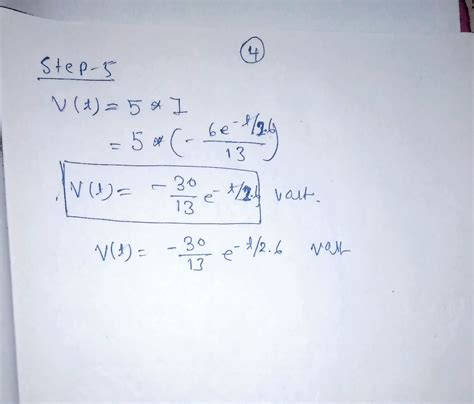 4
Step-5
V(t) = 5 * I
= 5 * (- 6e^-t/2.6 / 13)
V(t) = - 30/13 e^-t/2.6 volt.
V(t) = - 30/13 e^-t/2.6 volt